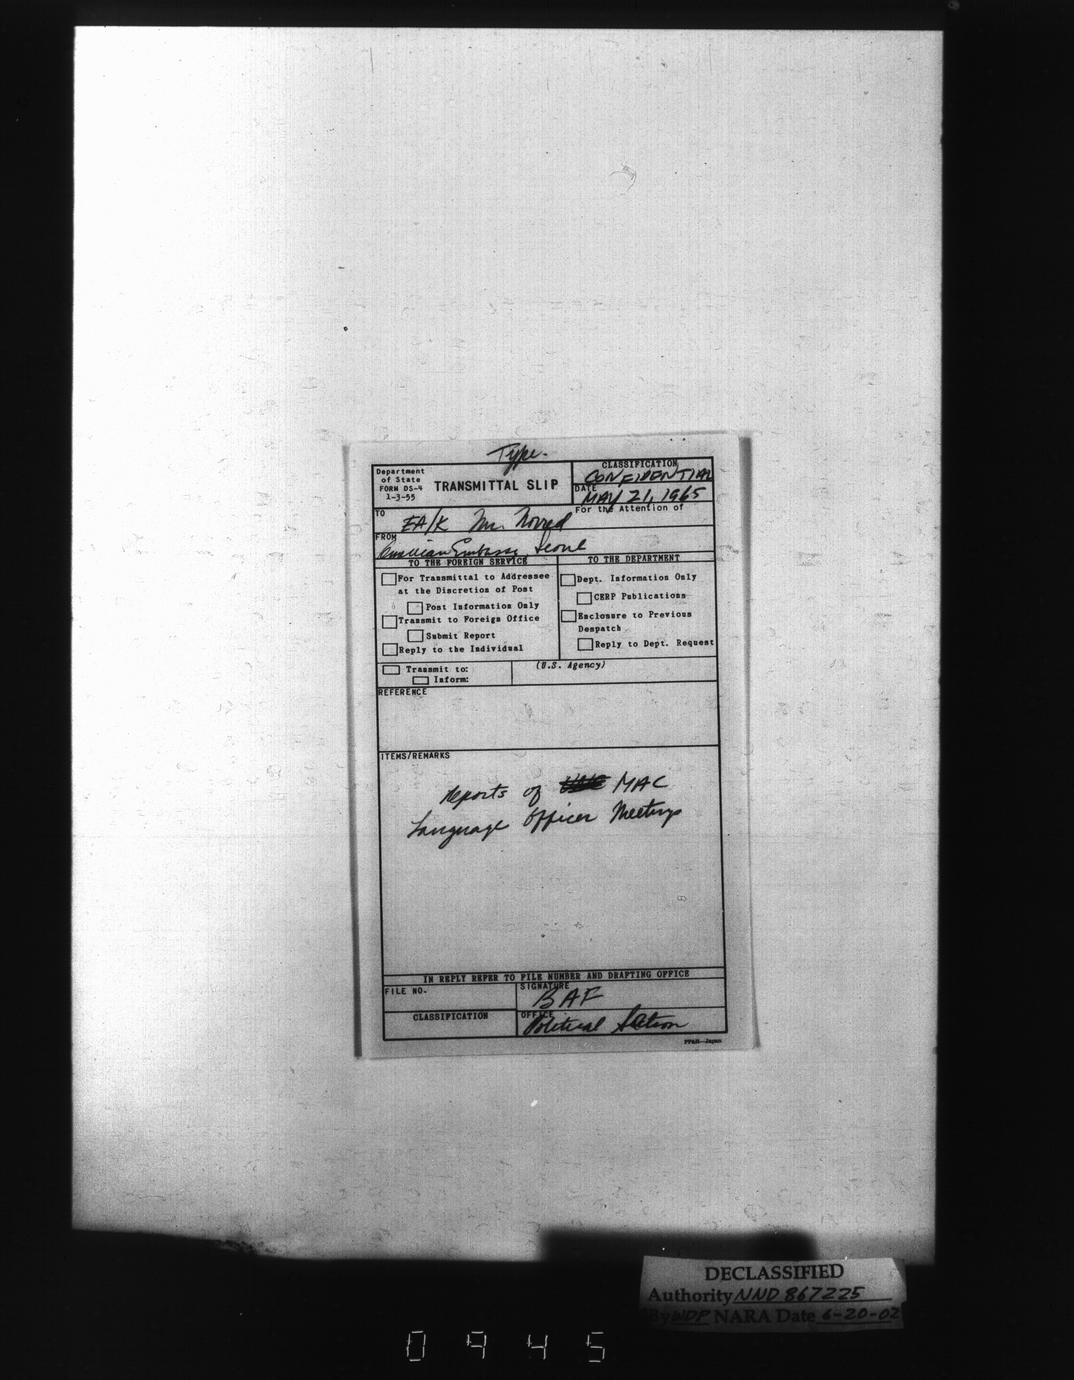 Type.
Department
of State
FORM DS-4
1-3-55
TRANSMITTAL SLIP
CLASSIFICATION
CONFIDENTIAL
DATE
MAY 21, 1965
TO
EA/K Mr. Norred
For the Attention of
FROM
American Embassy, Seoul
TO THE FOREIGN SERVICE
TO THE DEPARTMENT
For Transmittal to Addressee
at the Discretion of Post
Post Information Only
Transmit to Foreign Office
Submit Report
Reply to the Individual
Dept. Information Only
CERP Publications
Enclosure to Previous
Despatch
Reply to Dept. Request
Transmit to:
Inform:
(U.S. Agency)
REFERENCE
ITEMS/REMARKS
Reports of MAC
Language Officer Meetings
IN REPLY REFER TO FILE NUMBER AND DRAFTING OFFICE
FILE NO.
SIGNATURE
BAF
CLASSIFICATION
OFFICE
Political Section
DECLASSIFIED
Authority NND 867225
By WDP NARA Date 6-20-02
0945